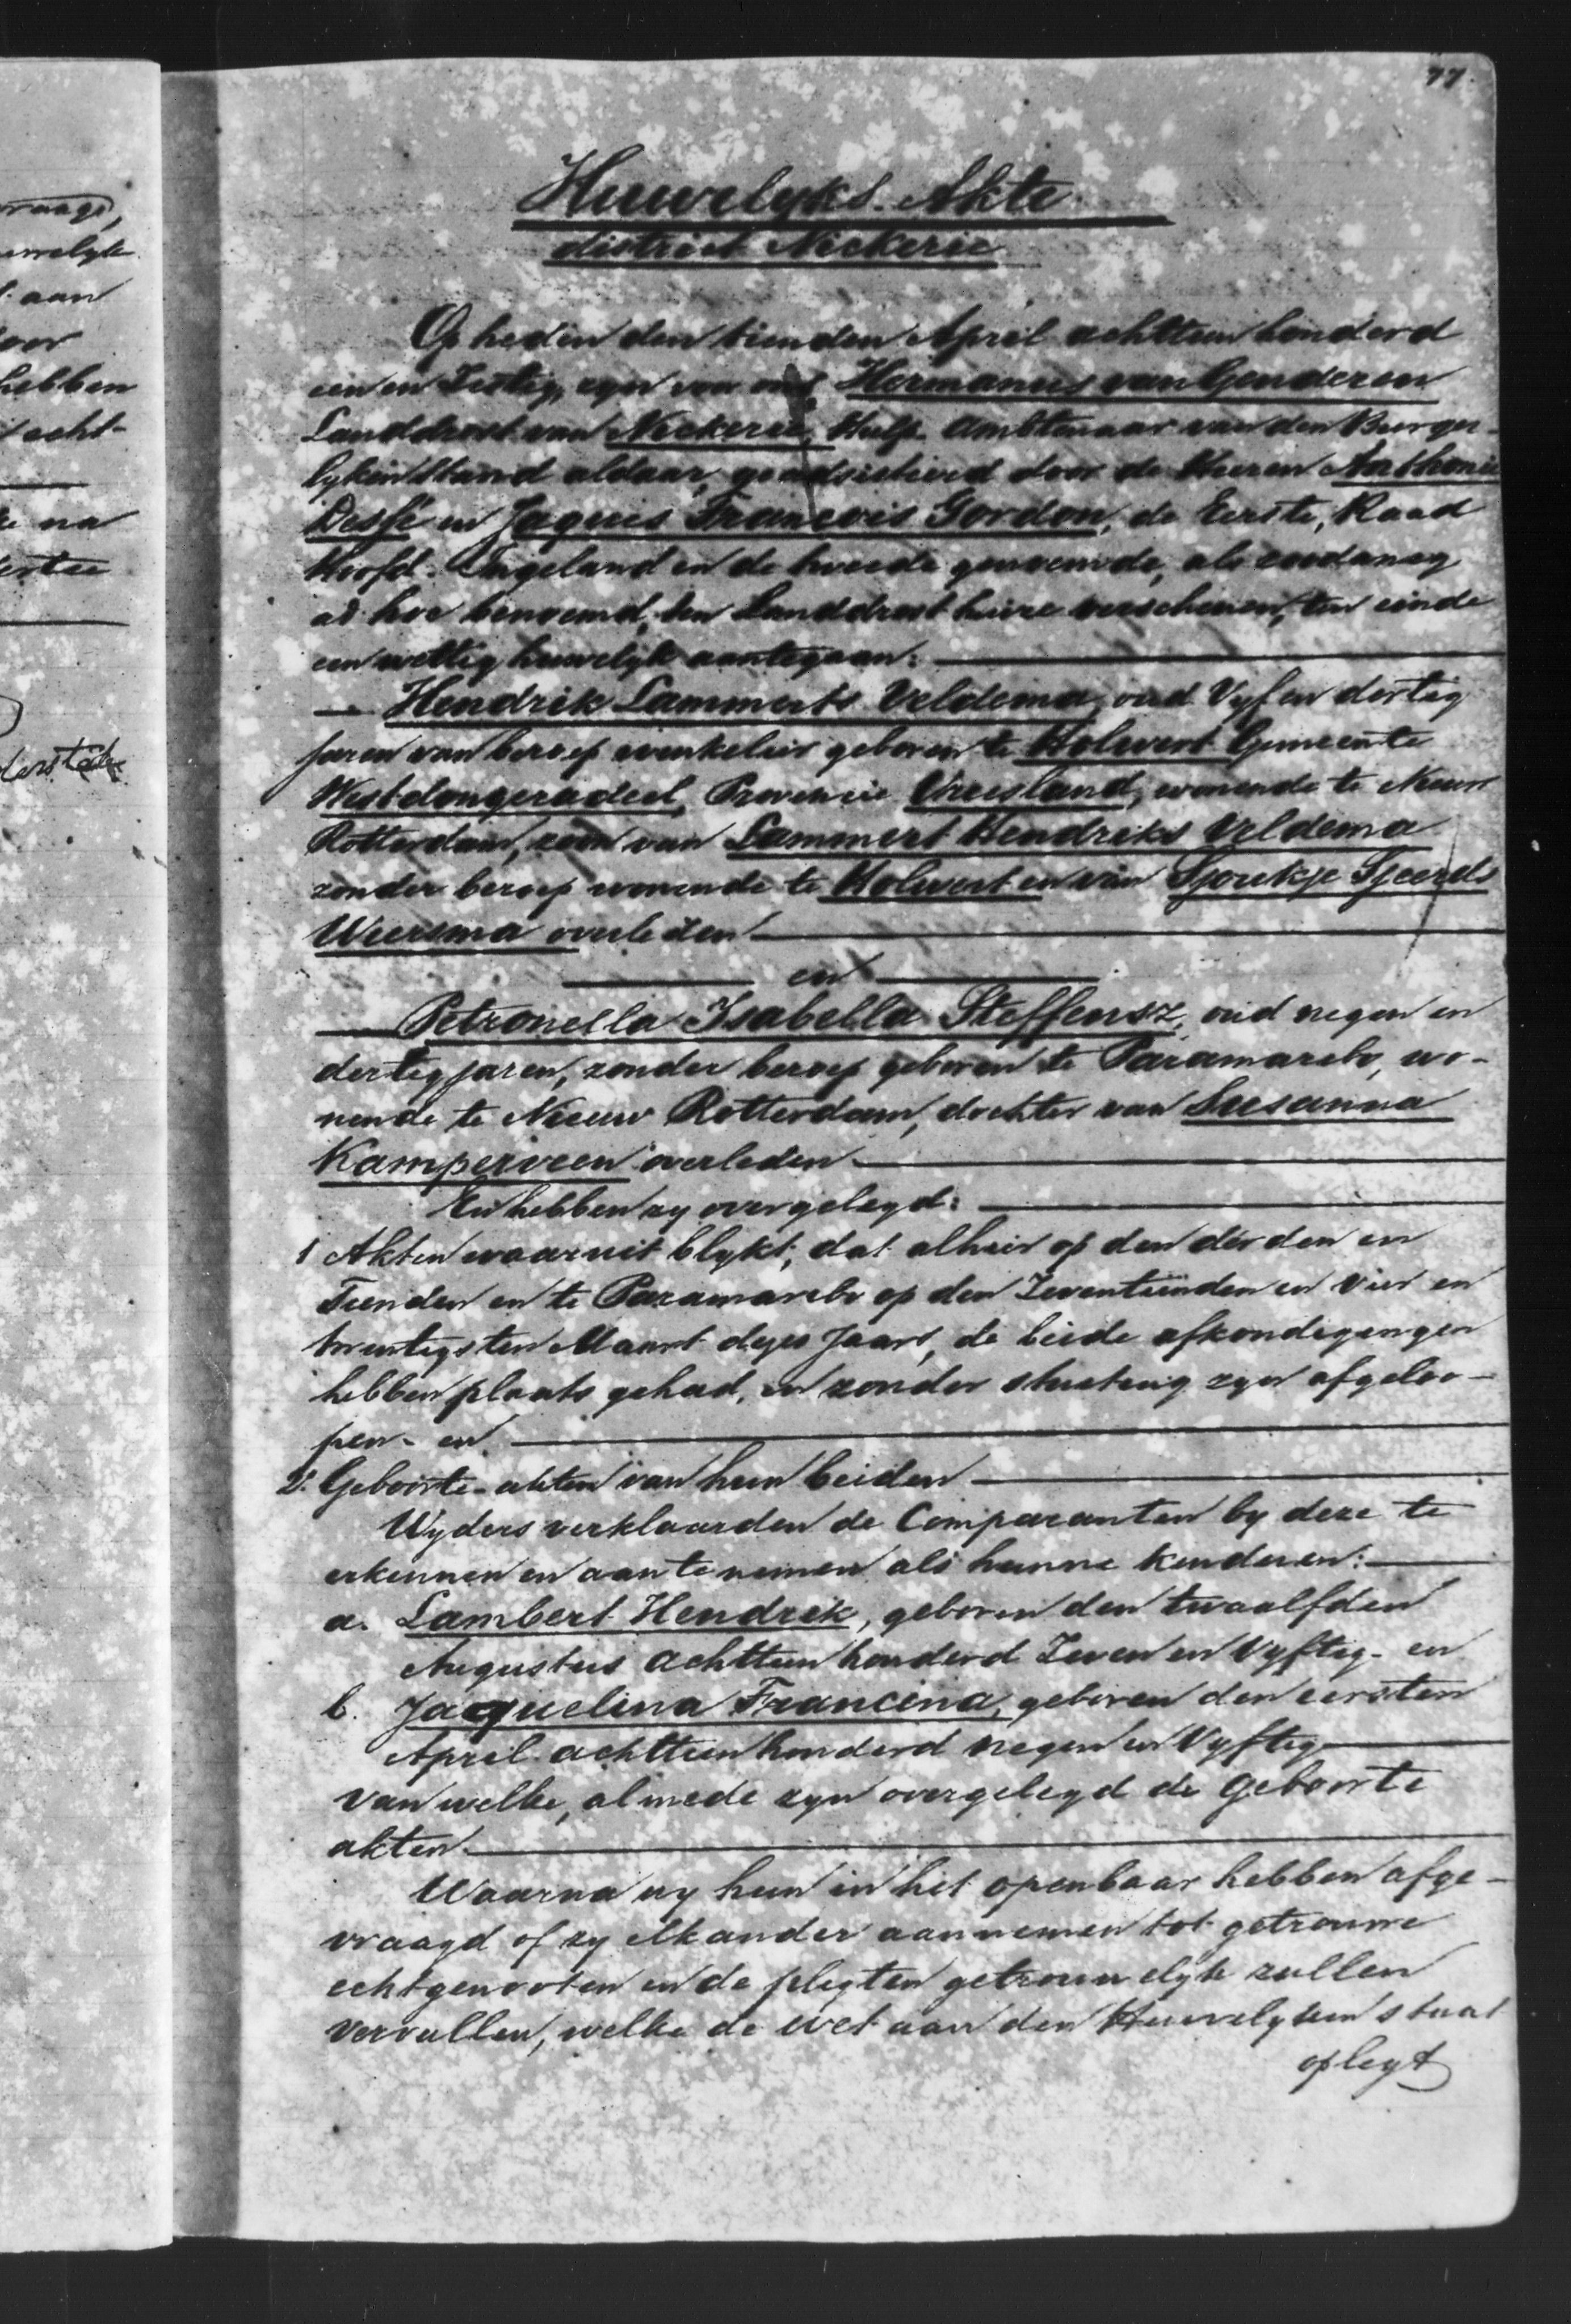 77.
Huwelyks-Akte
district Nickerie
Op heden den tienden April achttien honderd
een en Zestig, zyn voor ons, Hermanus van Genderen
Landdrost van Nickerie, Hulp- Ambtenaar van den Burger-
lyken Stand aldaar, geadsisteerd door de Heeren Anthonie
Dessé en Jaques Francois Gordon, de Eerste, Raad
Hoofd-Ingeland en de tweede genoemde, als zoodanig
ad hoc benoemd, ten Landdrost huize verschenen, ten einde
een wettig huwelyk aantegaan:
Hendrik Lammerts Veldema, oud Vyf en dertig
jaren van beroep winkelier geboren te Holwert Gemeente
Westdongeradeel, Provincie Vriesland, wonende te Nieuw
Rotterdam, zoon van Lammert Hendriks Veldema
zonder beroep wonende te Holwert en van Sjoukje Sjoerds
Wiersma overleden
en
Petronella Isabella Steffensz, oud negen en
dertig jaren, zonder beroep geboren te Paramaribo, wo-
nende te Nieuw Rotterdam, dochter van Susanna
Kamperveen overleden
En hebben zy overgelegd:
1 Akten waaruit blykt, dat alhier op den derden en
Tienden en te Paramaribo op den Zeventienden en Vier en
twintigsten Maart dezes Jaars, de beide afkondigingen
hebben plaats gehad, en zonder stuiting zyn afgeloo-
pen- en
2. Geboorte-akten van hun beiden
Wyders verklaarden de Comparanten by deze te
erkennen en aan te nemen als hunne kinderen:
a. Lambert Hendrik, geboren den twaalfden
Augustus achttien honderd Zeven en Vyftig- en
b. Jaquelina Francina, geboren den eersten
April achttien honderd negen en Vyftig
van welke, almede zyn overgelegd de geboorte
akten.
Waarna wy hun in het openbaar hebben afge-
vraagd of zy elkander aannemen tot getrouwe
echtgenooten en de pligten getrouwelyk zullen
vervullen, welke de wet aan den Huwelyken staat
oplegt